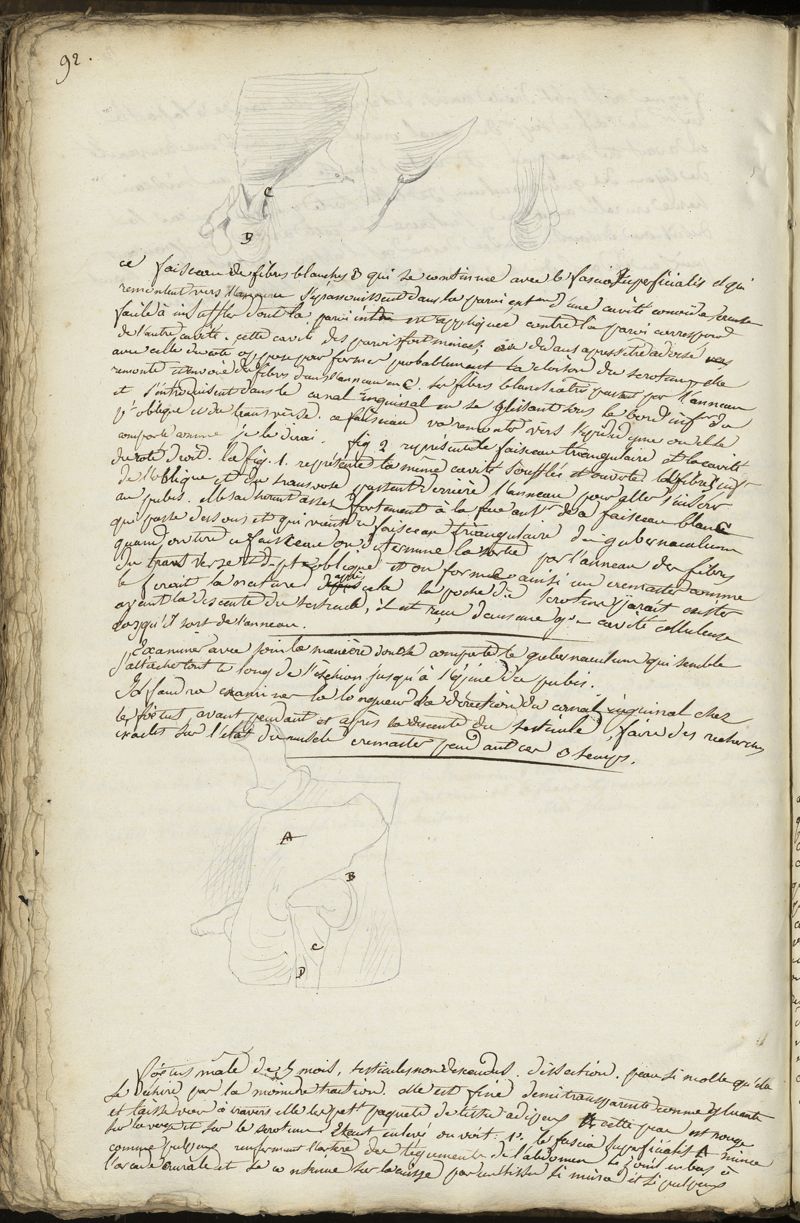 92.
C
B
ce faisceau de fibres blanches B qui se continue avec le fascia superficialis et qui
remontent vers l'anneau s'épanouissent dans la paroi ext. d'une cavité
facile à insuffler dont la paroi int. est appliquée contre la paroi correspond.
de l'autre cavité. cette cavité des parois fort minces, adossé
avec celle du côté opposé pour former probablement la cloison du scrotum, elle
remonte et envoie des fibres dans l'anneau en C. ses fibres blanchâtres passent par l'anneau
et s'introduisent dans le canal inguinal en se glissant sous le bord inf. du
pt oblique et du transverse. ce faisceau va remonter vers l'épididyme où il se
comporte comme je le dirai. fig 2 représente le faisceau triangulaire et la cavité
du côté droit. la fig. 1. représente la même cavité soufflée et ouverte. les fibres inf.
de l'oblique et du transverse passent derrière l'anneau pour aller s'insérer
au pubis. elles adhèrent assez fortement à la face ant. de ce faisceau blanc
qui passe dessous et qui vient du faisceau triangulaire du gubernaculum
quand on tire ce faisceau on détermine la sortie par l'anneau des fibres
du transverse et du pt oblique et on forme ainsi un cremaster comme
le ferait la nature d'après cela la poche du scrotum paraît exister
avant la descente du testicule, il est reçu dans une cavité celluleuse
lorsqu'il sort de l'anneau.
Examiner avec soin la manière dont se comporte le gubernaculum qui semble
s'attacher tout le long de l'ischion jusqu'à l'épine du pubis.
Il faudra examiner la longueur la direction du canal inguinal chez
le foetus avant pendant et après la descente du testicule, faire des recherches
exactes sur l'état du muscle cremaster pendant ces 3 temps.
A
B
C
D
Foetus mâle de 5 mois, testicules non descendus. dissection. peau si molle qu'elle
se déchire par la moindre traction. elle est fine demi transparente comme gluante
et laisse voir à travers elle les petits paquets de tissu adipeux cette peau est rouge
sur la verge et sur le scrotum. étant enlevé on voit. 1º le fascia superficialis A mince
comme pulpeux renfermant l'artère des téguments de l'abdomen se fixe en bas à
l'arcade crurale et se continue sur la cuisse par un tissu si mince et si pulpeux